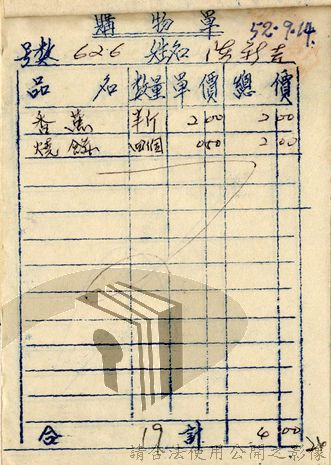 購物單
52.9.14.
号數 626 姓名
品名 數量 單價 總價
香蕉 半斤 2 00 2 00
燒餅 四個 0 50 2 00
合計 4 00
請合法使用公開之影像